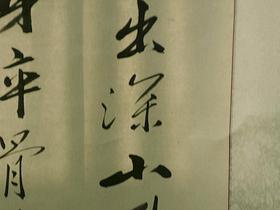 出深山
身碎骨